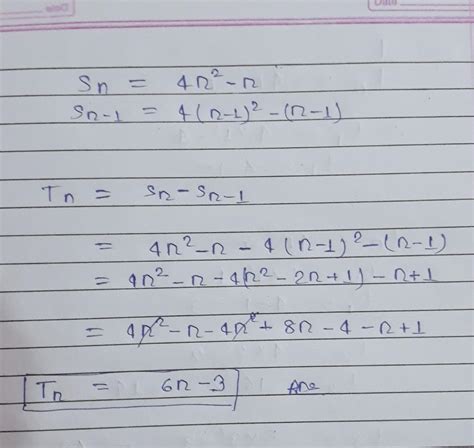 Date
Sn = 4n² - n
Sn-1 = 4(n-1)² - (n-1)
Tn = Sn - Sn-1
= 4n² - n - 4(n-1)² - (n-1)
= 4n² - n - 4(n² - 2n + 1) - n + 1
= 4n² - n - 4n² + 8n - 4 - n + 1
Tn = 6n - 3 Ans